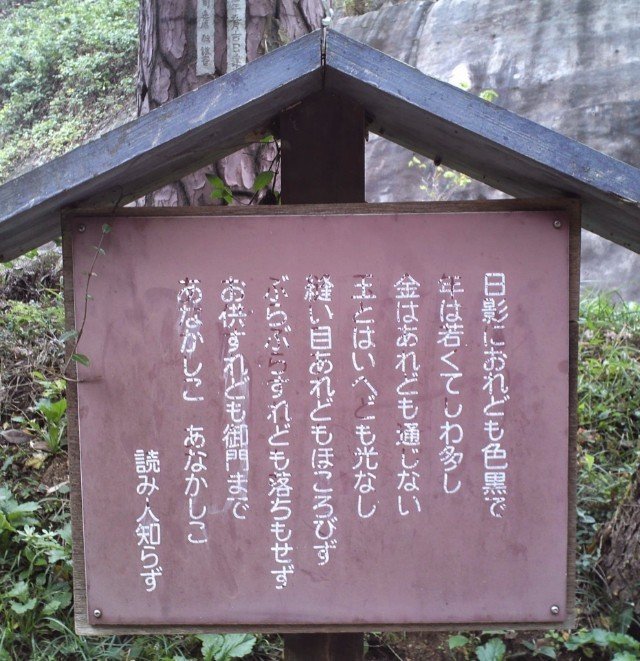 日影におれども色黒で
年は若くてしわ多し
金はあれども通じない
玉とはいへども光なし
縫い目あれどもほころびず
ぶらぶらすれども落ちもせず
お供すれども御門まで
あなかしこ　あなかしこ
読み人知らず